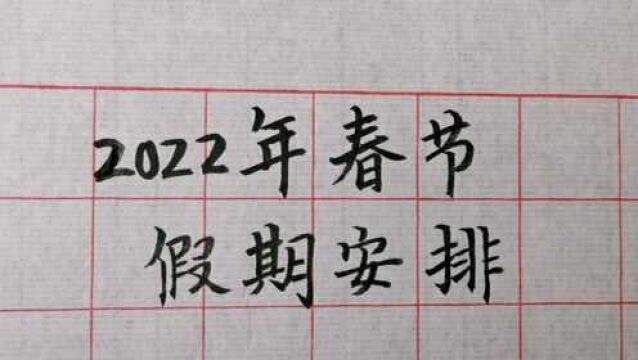 2022年春节
假期安排